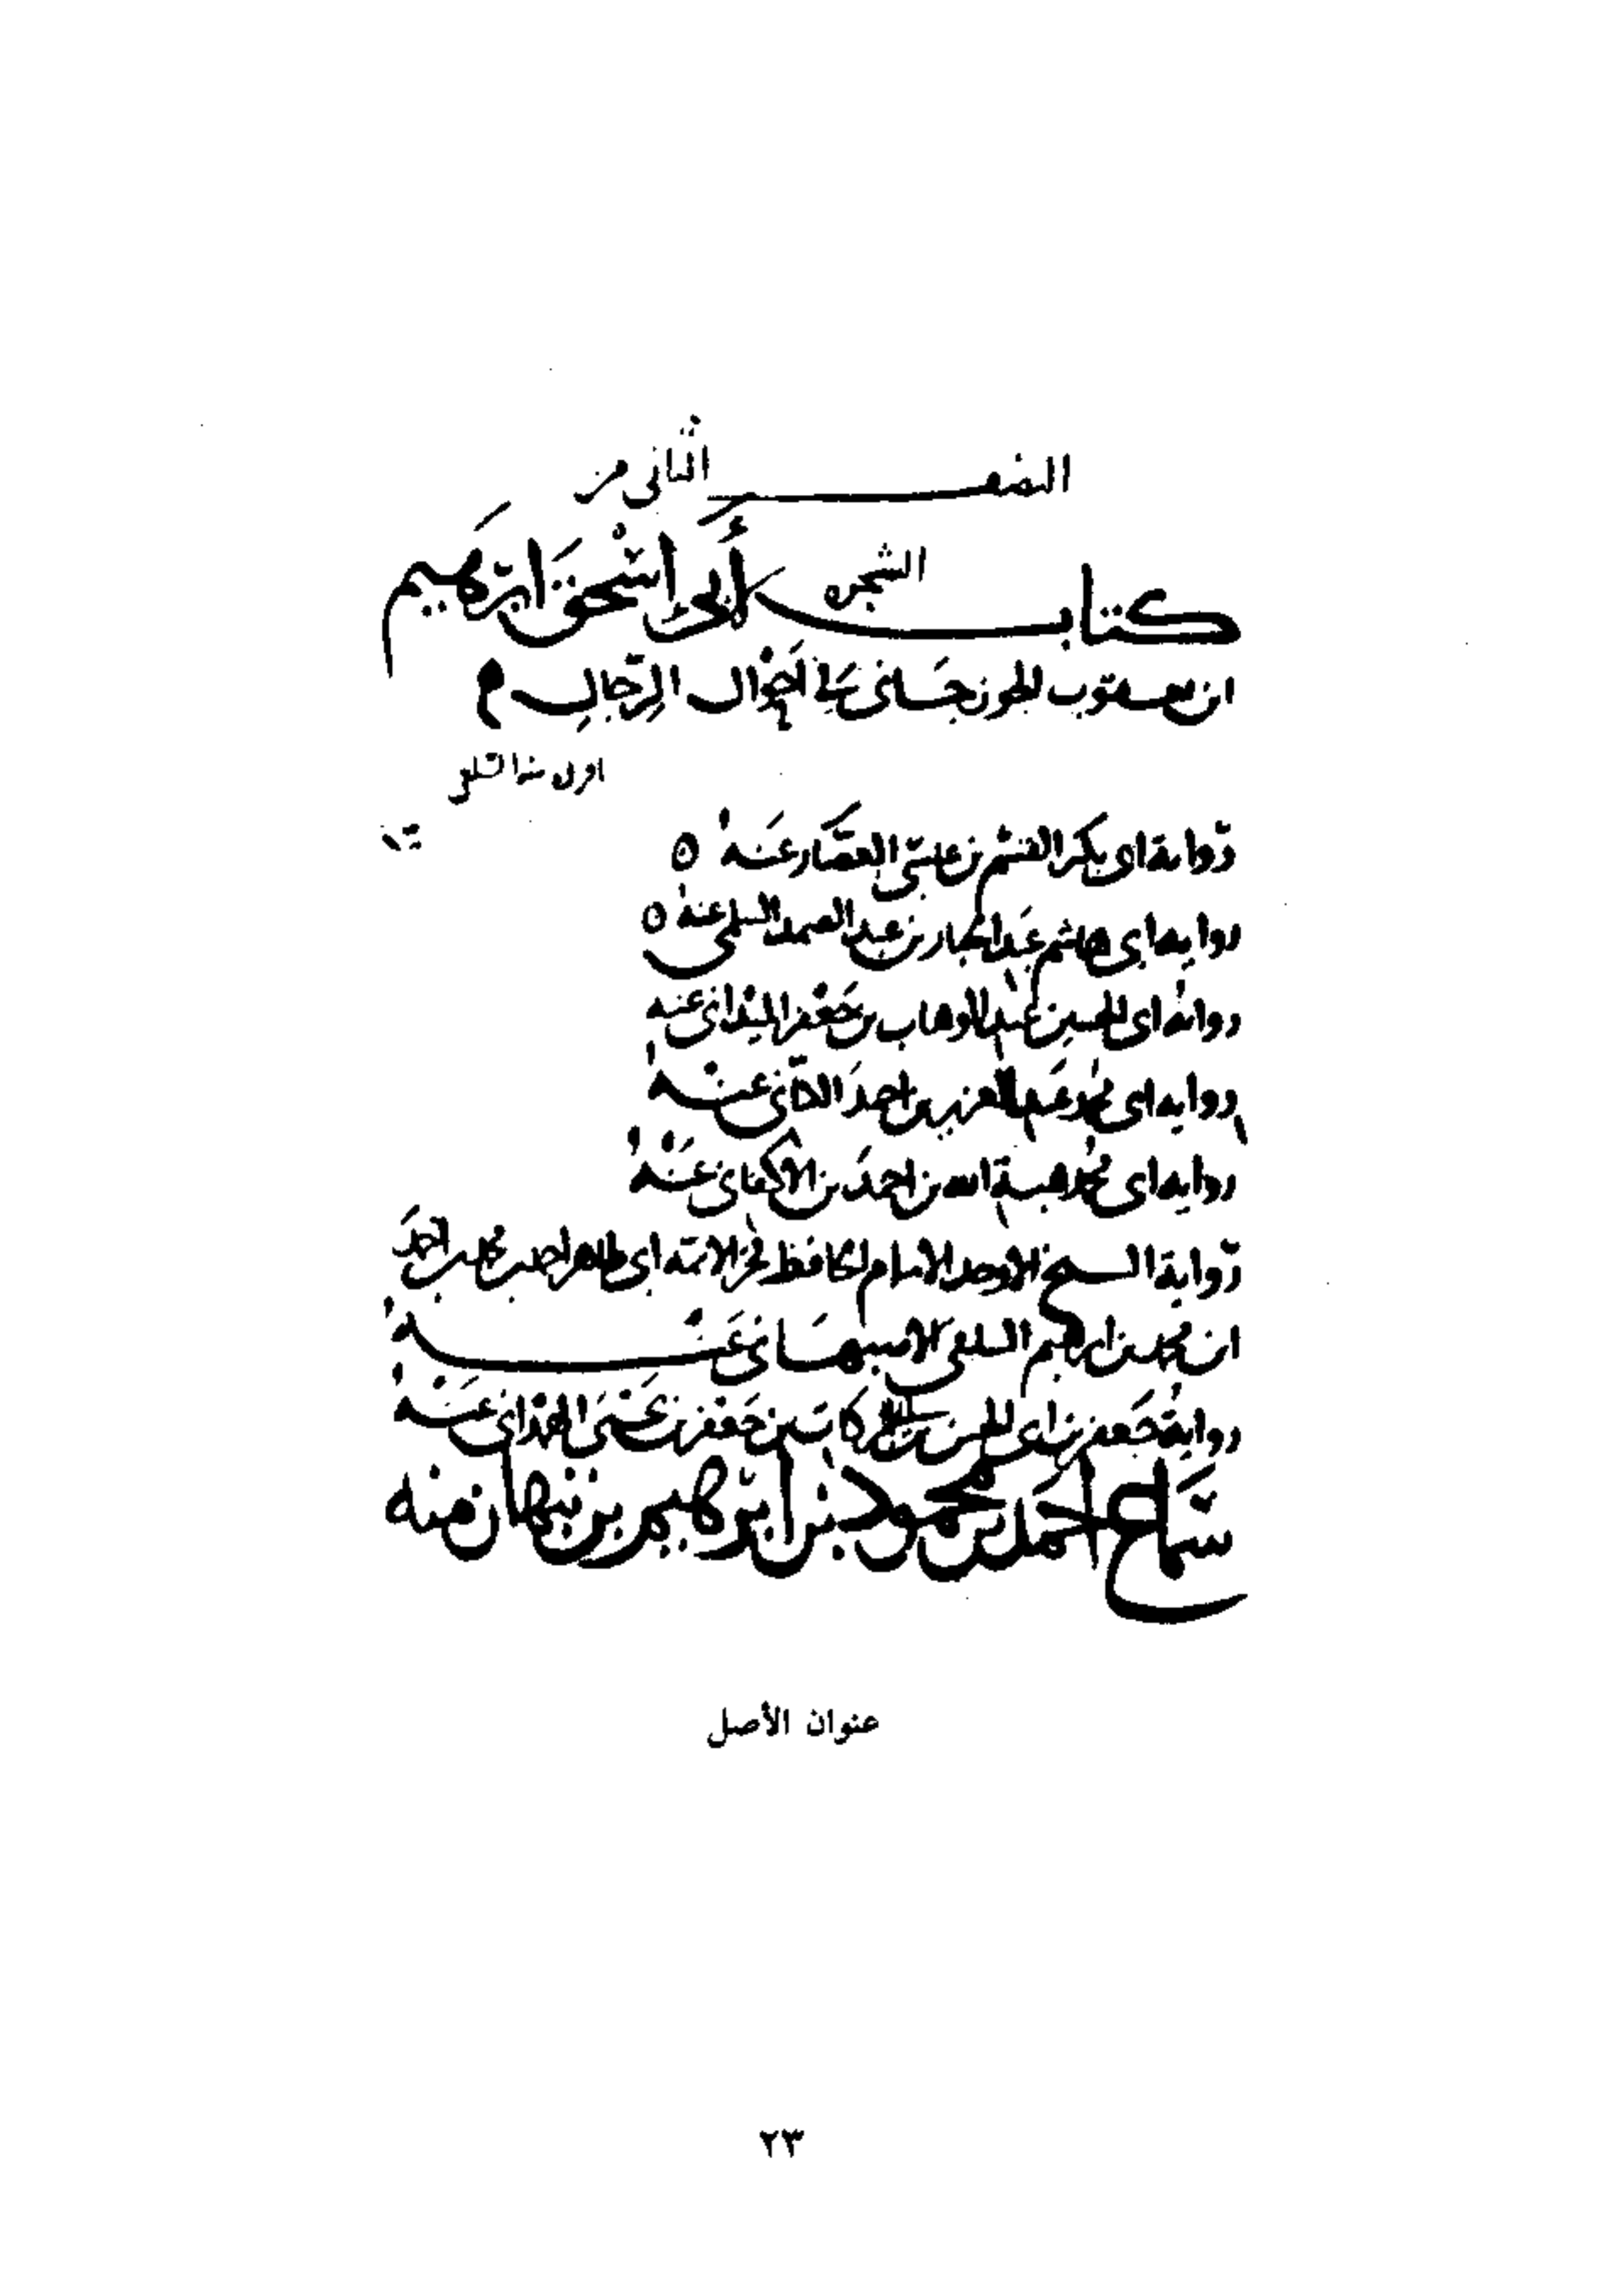 النصف الثاني من
كتاب الشجره أبي اسحق ابرهيم
ابن يعقوب الجوزجاني في احوال الرجال
رواية ابي بكر القسم بن عيسى العصار عنه
رواية ابي هاشم عبد الجبار بن عبد الصمد السلمي عنه
رواية ابي الحسين عبد الوهاب بن جعفر الميداني عنه
رواية ابي محمد عبد العزيز بن احمد الكتاني عنه
رواية ابي محمد هبة الله بن احمد بن الاكفاني عنه
رواية الشيخ الاوحد الامام الحافظ فخر الائمة ابي طاهر احمد بن محمد بن احمد
ابن محمد بن ابرهيم السلفي الاصبهاني عنه
رواية جعفر بن ابي الحسن بن ابي البركات بن جعفر بن يحيى الهمذاني عنه
سماع احمد بن محمود بن ابرهيم بن نبهان منه
عنوان الأصل
٢٣